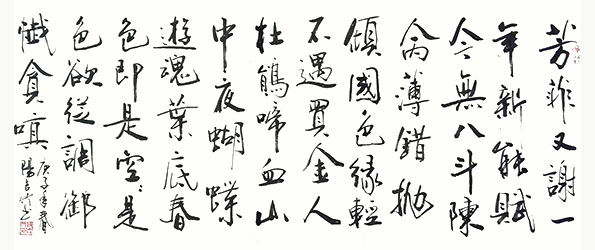 芳菲又謝一
年新能賦
今無八斗陳
命薄錯拋
傾國色緣輕
不遇買金人
杜鵑啼血山
中夜蝴蝶
遊魂葉底春
色即是空〻是
色欲從調御
懺貪嗔
庚子年春